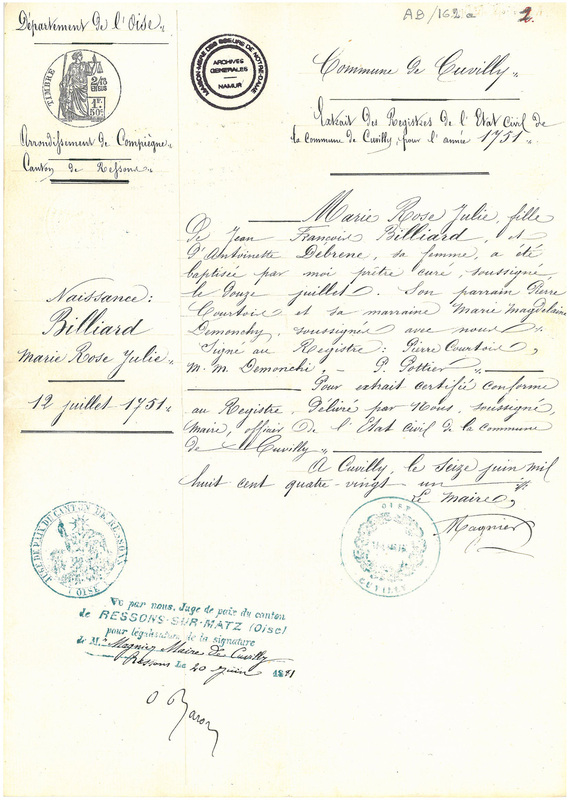 AB/162a
2.
Département de l'Oise
TIMBRE
2/10
EN SUS
1F.
50c
Arrondissement de Compiègne
Canton de Ressons
MAISON-MERE DES SŒURS DE NOTRE-DAME
ARCHIVES
GENERALES
NAMUR
Commune de Cuvilly
Extrait des Registres de l'Etat civil de
la commune de Cuvilly, pour l'année 1751
Naissance:
Billiard
Marie Rose Julie
12 juillet 1751
Marie Rose Julie, fille
de Jean François Billiard, et
d'Antoinette Débrene, sa femme, a été
baptisée par moi prêtre curé, soussigné,
le douze juillet. Son parrain Pierre
Courtois et sa marraine Marie Magdelaine
Demonchy, soussignée avec nous
Signé au Registre: Pierre Courtois,
M. M. Demonchi, - P. Pottier
Pour extrait certifiée conforme
au Registre, Délivré par Nous, soussigné,
Maire, officier de l'Etat civil de la commune
de Cuvilly
A Cuvilly, le seize juin mil
huit cent quatre-vingt un
Le Maire,
Magnier
JUGE DE PAIX DU CANTON DE RESSONS
(OISE)
OISE
CUVILLY
Vu par nous, Juge de paix du canton
de RESSONS-SUR-MATZ (Oise)
pour légalisation de la signature
de M. Magnier Maire de Cuvilly
Ressons Le 20 Juin 1881